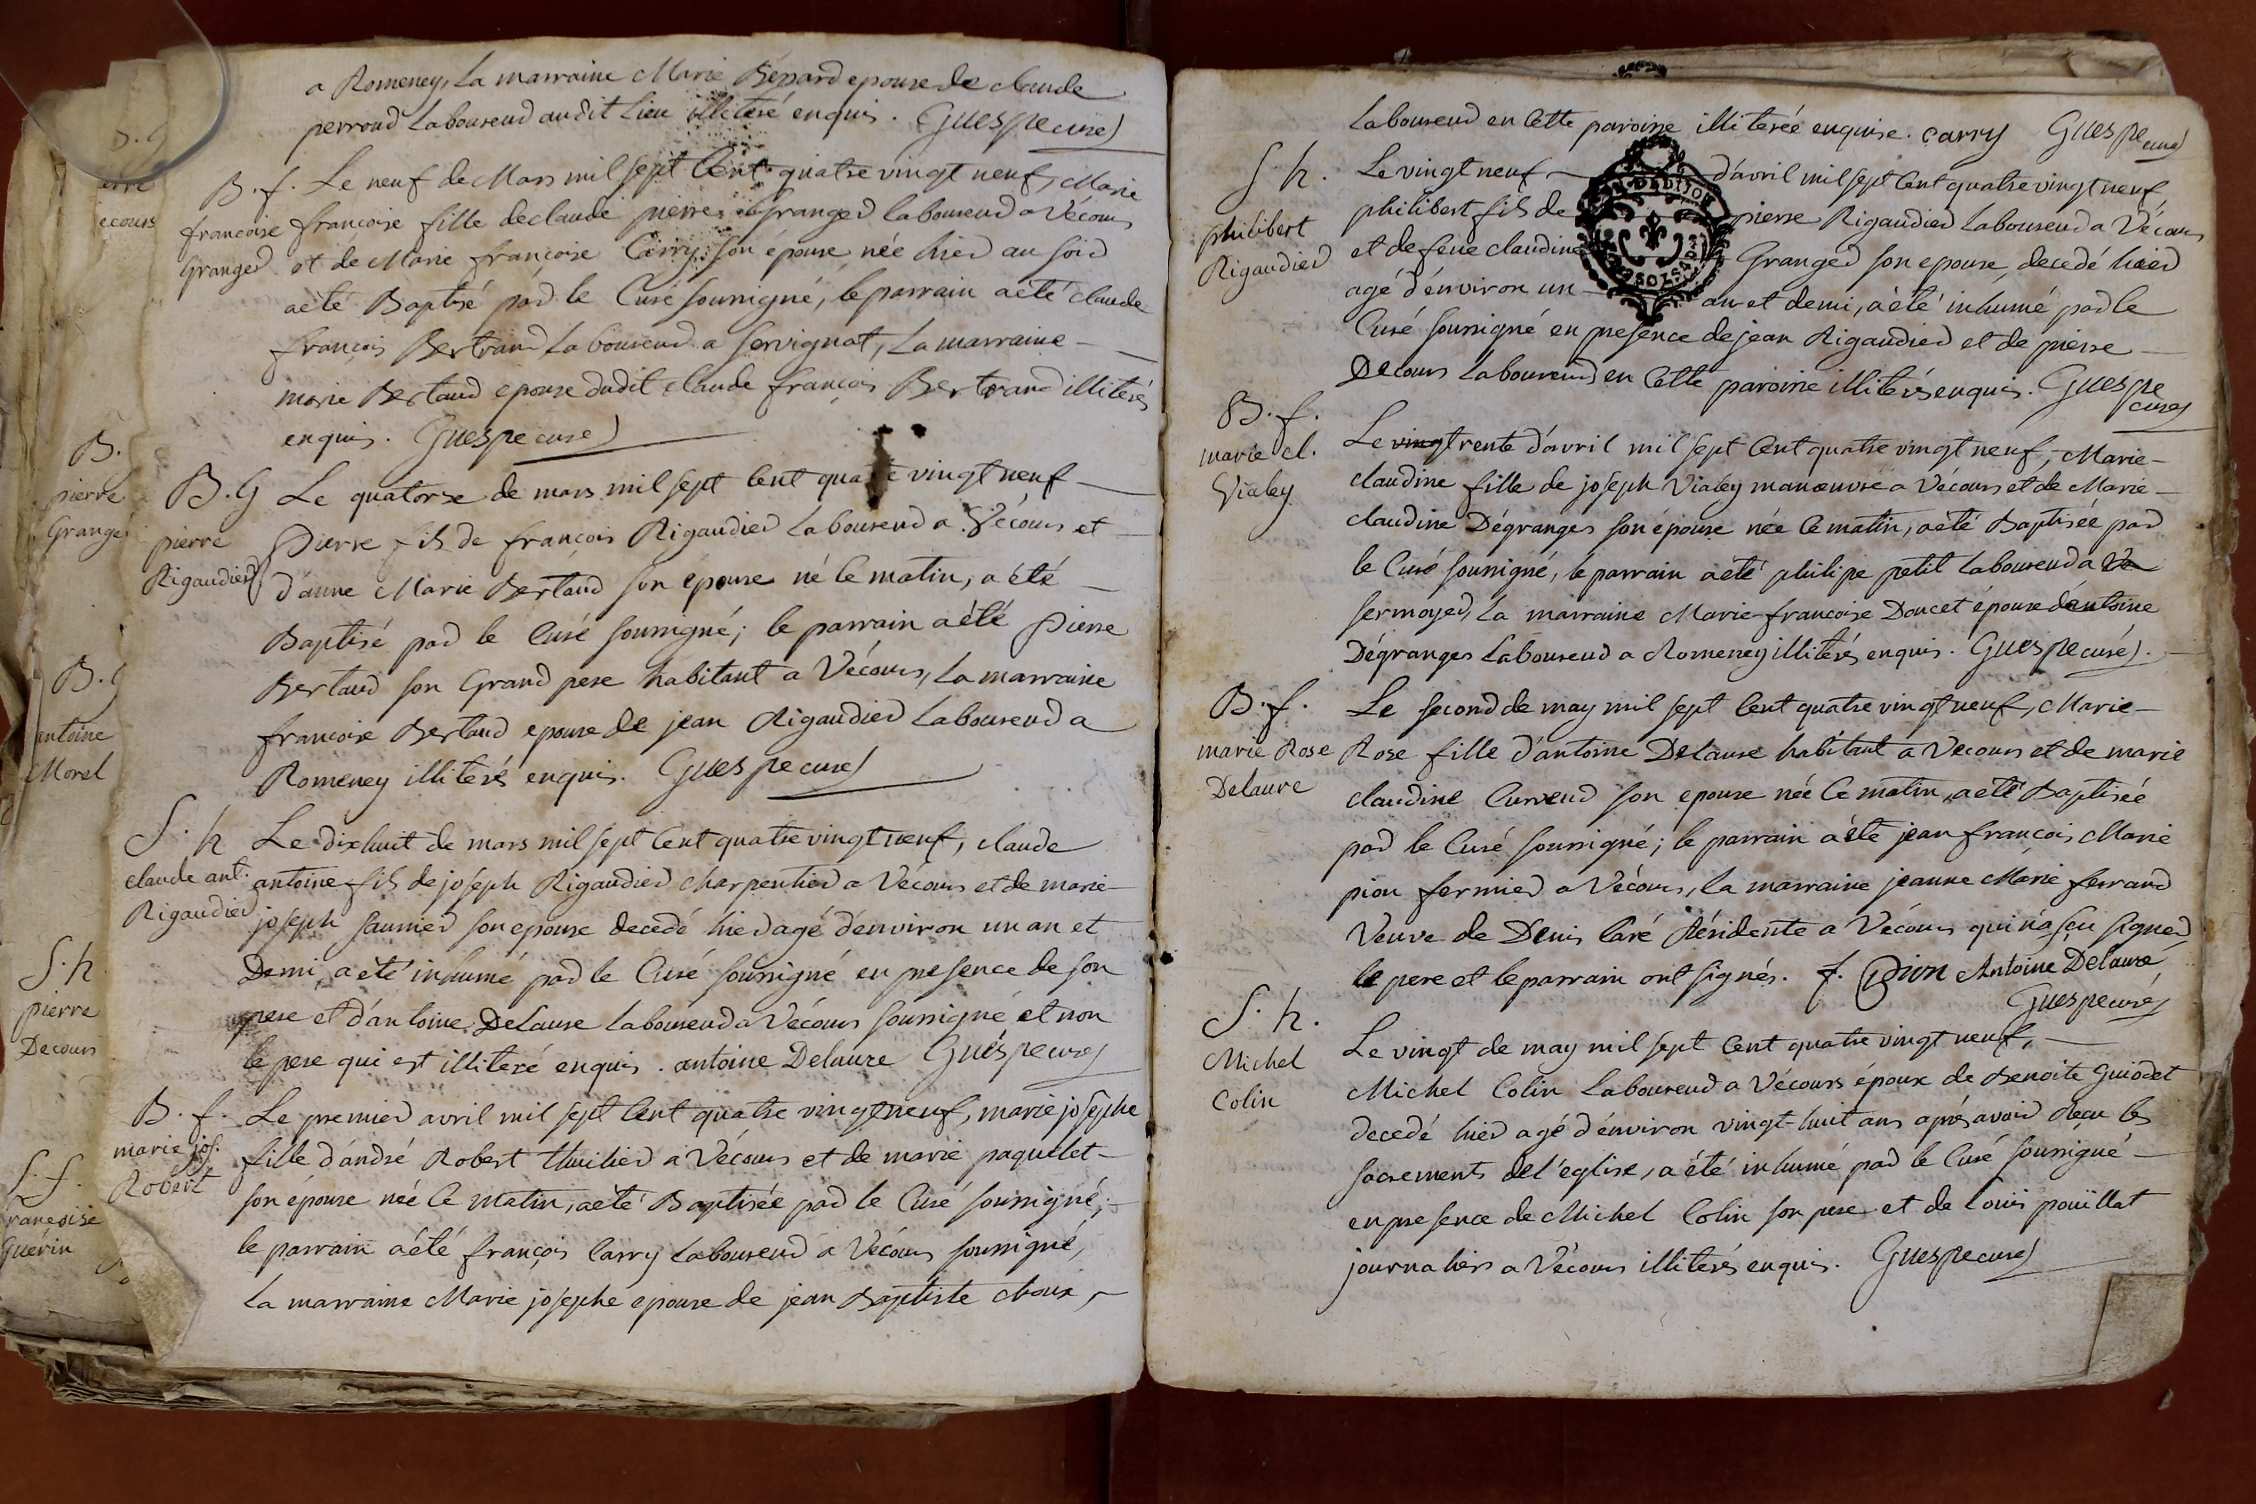 a Romeney, La marraine Marie Bépard epouse de claude
perroud Laboureur audit Lieu illiteré enquis. Guespe curé
B. f. Le neuf de Mars mil sept Cent quatre vingt neuf, Marie
francoise francoise fille de claude pierre Granger laboureur a Vécours
Granger et de Marie françoise Carry son épouse née hier au soir
a été Baptisé par le Curé soussigné, le parrain a été claude
françois Bertrand Laboureur a servignat, La marraine
marie Bertaud epouse dudit claude françois Bertrand illiterés
enquis. Guespe curé
B. G Le quatorze de mars mil sept Cent quatre vingt neuf
pierre Pierre fils de françois Rigaudier Laboureur a Vécours et
Rigaudier d'anne Marie Bertaud son épouse né ce matin, a été
Baptisé par le Curé soussigné; le parrain a été Pierre
Bertaud son Grand pere habitant a Vécours, La marraine
francoise Bertaud epouse de jean Rigaudier Laboureur a
Romeney illiterés enquis. Guespe curé
S. h Le dixhuit de mars mil sept Cent quatre vingt neuf, claude
claude ant. antoine fils de joseph Rigaudier charpentier a Vécours et de marie
Rigaudier joseph saunier son epouse decedé hier agé d'environ un an et
Demi, a été inhumé par le Curé soussigné en presence de son
pere et d'antoine Delaure Laboureur a Vécours soussigné et non
le pere qui est illiteré enquis. antoine Delaure Guespe curé
B. f. Le premier avril mil sept Cent quatre vingt neuf, marie josephe
marie jos. fille d'andré Robert thuilier a Vécours et de marie paquelet
Robert son épouse née ce matin, a été Baptisée par le Curé soussigné;
le parrain a été françois Carry Laboureur a Vécours soussigné,
La marraine Marie josephe epouse de jean Baptiste choux
B.
pierre
Granger
B. G
antoine
Morel
S. h
pierre
Decours
S. f.
françoise
Guérin
Laboureur en Cette paroisse illiterée enquise. Carry Guespe curé
S h. Le vingt neuf d'avril mil sept Cent quatre vingt neuf
philibert philibert fils de pierre Rigaudier Laboureur a Vécours
Rigaudier et de feue claudine Granger son epouse, decedé hier
agé d'environ un an et demi, a été inhumé par le
Curé soussigné en presence de jean Rigaudier et de pierre
Decours Laboureurs en Cette paroisse illiterés enquis. Guespe curé
B. f.
marie cl. Le vingt trente d'avril mil sept Cent quatre vingt neuf, Marie
Vialey claudine fille de joseph Vialey manoeuvre a Vécours et de Marie
claudine Dégranges son épouse née ce matin, a été Baptisée par
le Curé soussigné, le parrain a été philipe petit Laboureur a
sermoyer, La marraine Marie francoise Doucet épouse d'antoine
Dégranges Laboureur a Romeney illiterés enquis. Guespe curé.
B. f. Le second de may mil sept Cent quatre vingt neuf, Marie
marie Rose Rose fille d'antoine Delaure habitant a Vecours et de marie
Delaure claudine Curveur son epouse née ce matin, a été Baptisée
par le Curé soussigné; le parrain a été jean françois Marie
pion fermier a Vécours, La marraine jeanne Marie ferrand
Veuve de Denis Caré Résidente a Vécours qui n'a sçu signer
le pere et le parrain ont signés. f. Pion Antoine Delaure
Guespe curé
S. h. Le vingt de may mil sept Cent quatre vingt neuf,
Michel Michel Colin Laboureur a Vécours époux de Benoite Guiodet
Colin decedé hier agé d'environ vingt-huit ans aprés avoir Reçu les
sacrements de l'eglise, a été inhumé par le Curé soussigné
en presence de Michel Colin son pere et de Louis pouïllat
journaliers a Vécours illiterés enquis. Guespe curé